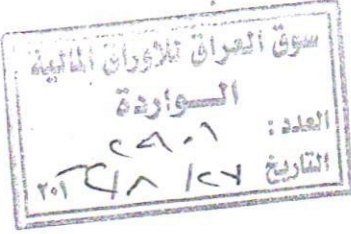 سوق العراق للاوراق المالية
الـــواردة
العدد :
التاريخ ٢٧ / ٨ / ٢٠١